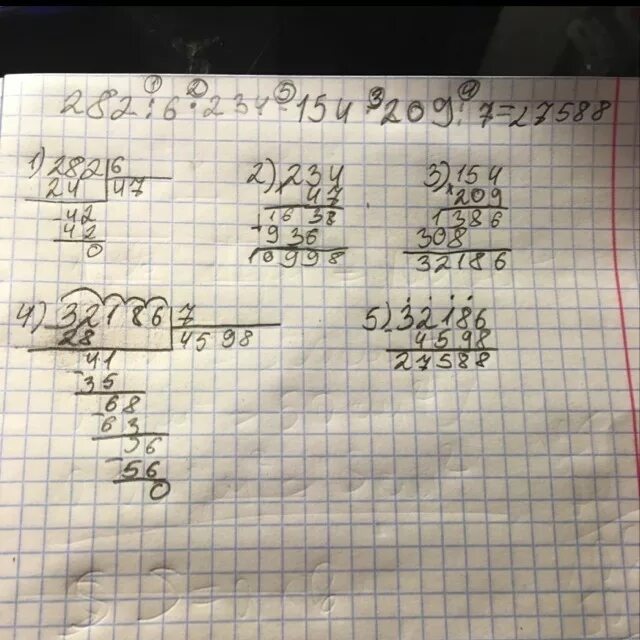 ① ② ⑤ 3 ④
282:6·234-154·209:7=27588
1) 282 6
24 47
42
42
0
2) 234
47
1638
936
10998
3) 154
209
1386
308
32186
4) 32186 7
28 4598
41
35
68
63
36
56
0
5) 32186
4598
27588